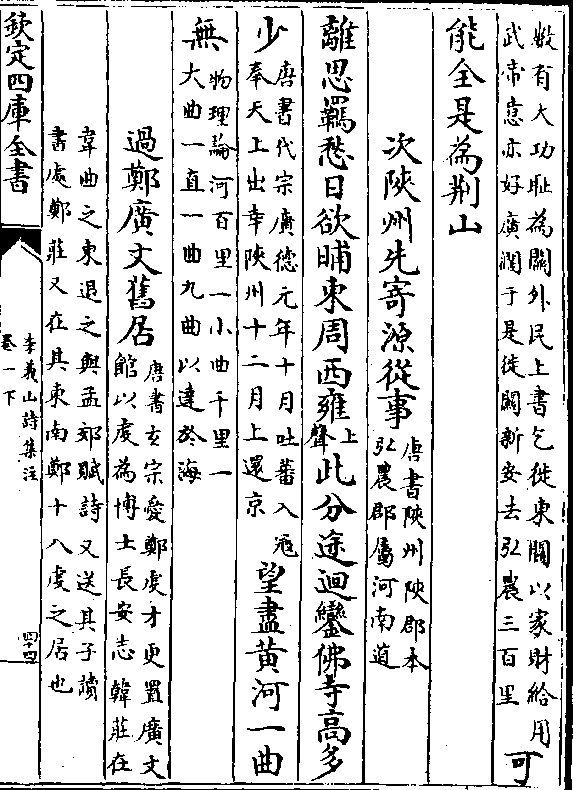 數有大功恥為關外民上書乞徙東關以家財給用
武帝意亦好廣濶于是徙關新安去弘農三百里
可
能全是為荆山
次陜州先寄源從事
唐書陜州陜郡本
弘農郡屬河南道
離思羈愁日欲晡東周西雍
上
聲
此分途迴鑾佛寺高多
少
唐書代宗廣德元年十月吐蕃入冦
奉天上出幸陜州十二月上還京
望盡黄河一曲
無
物理論河百里一小曲千里一
大曲一直一曲九曲以達於海
過鄭廣文舊居
唐書玄宗愛鄭虔才更置廣文
館以虔為博士長安志韓莊在
韋曲之東退之與孟郊賦詩又送其子讀
書處鄭莊又在其東南鄭十八虔之居也
欽定四庫全書
李義山詩集注
卷一下
四十四